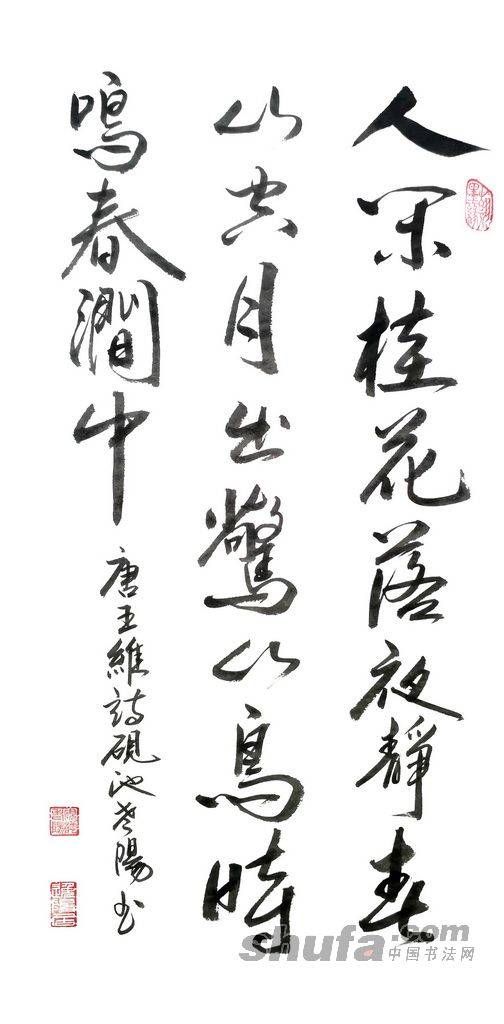 人閑桂花落夜靜春
山空月出驚山鳥時
鳴春澗中
唐王維詩硯池陽书
shufa.com
中国书法网